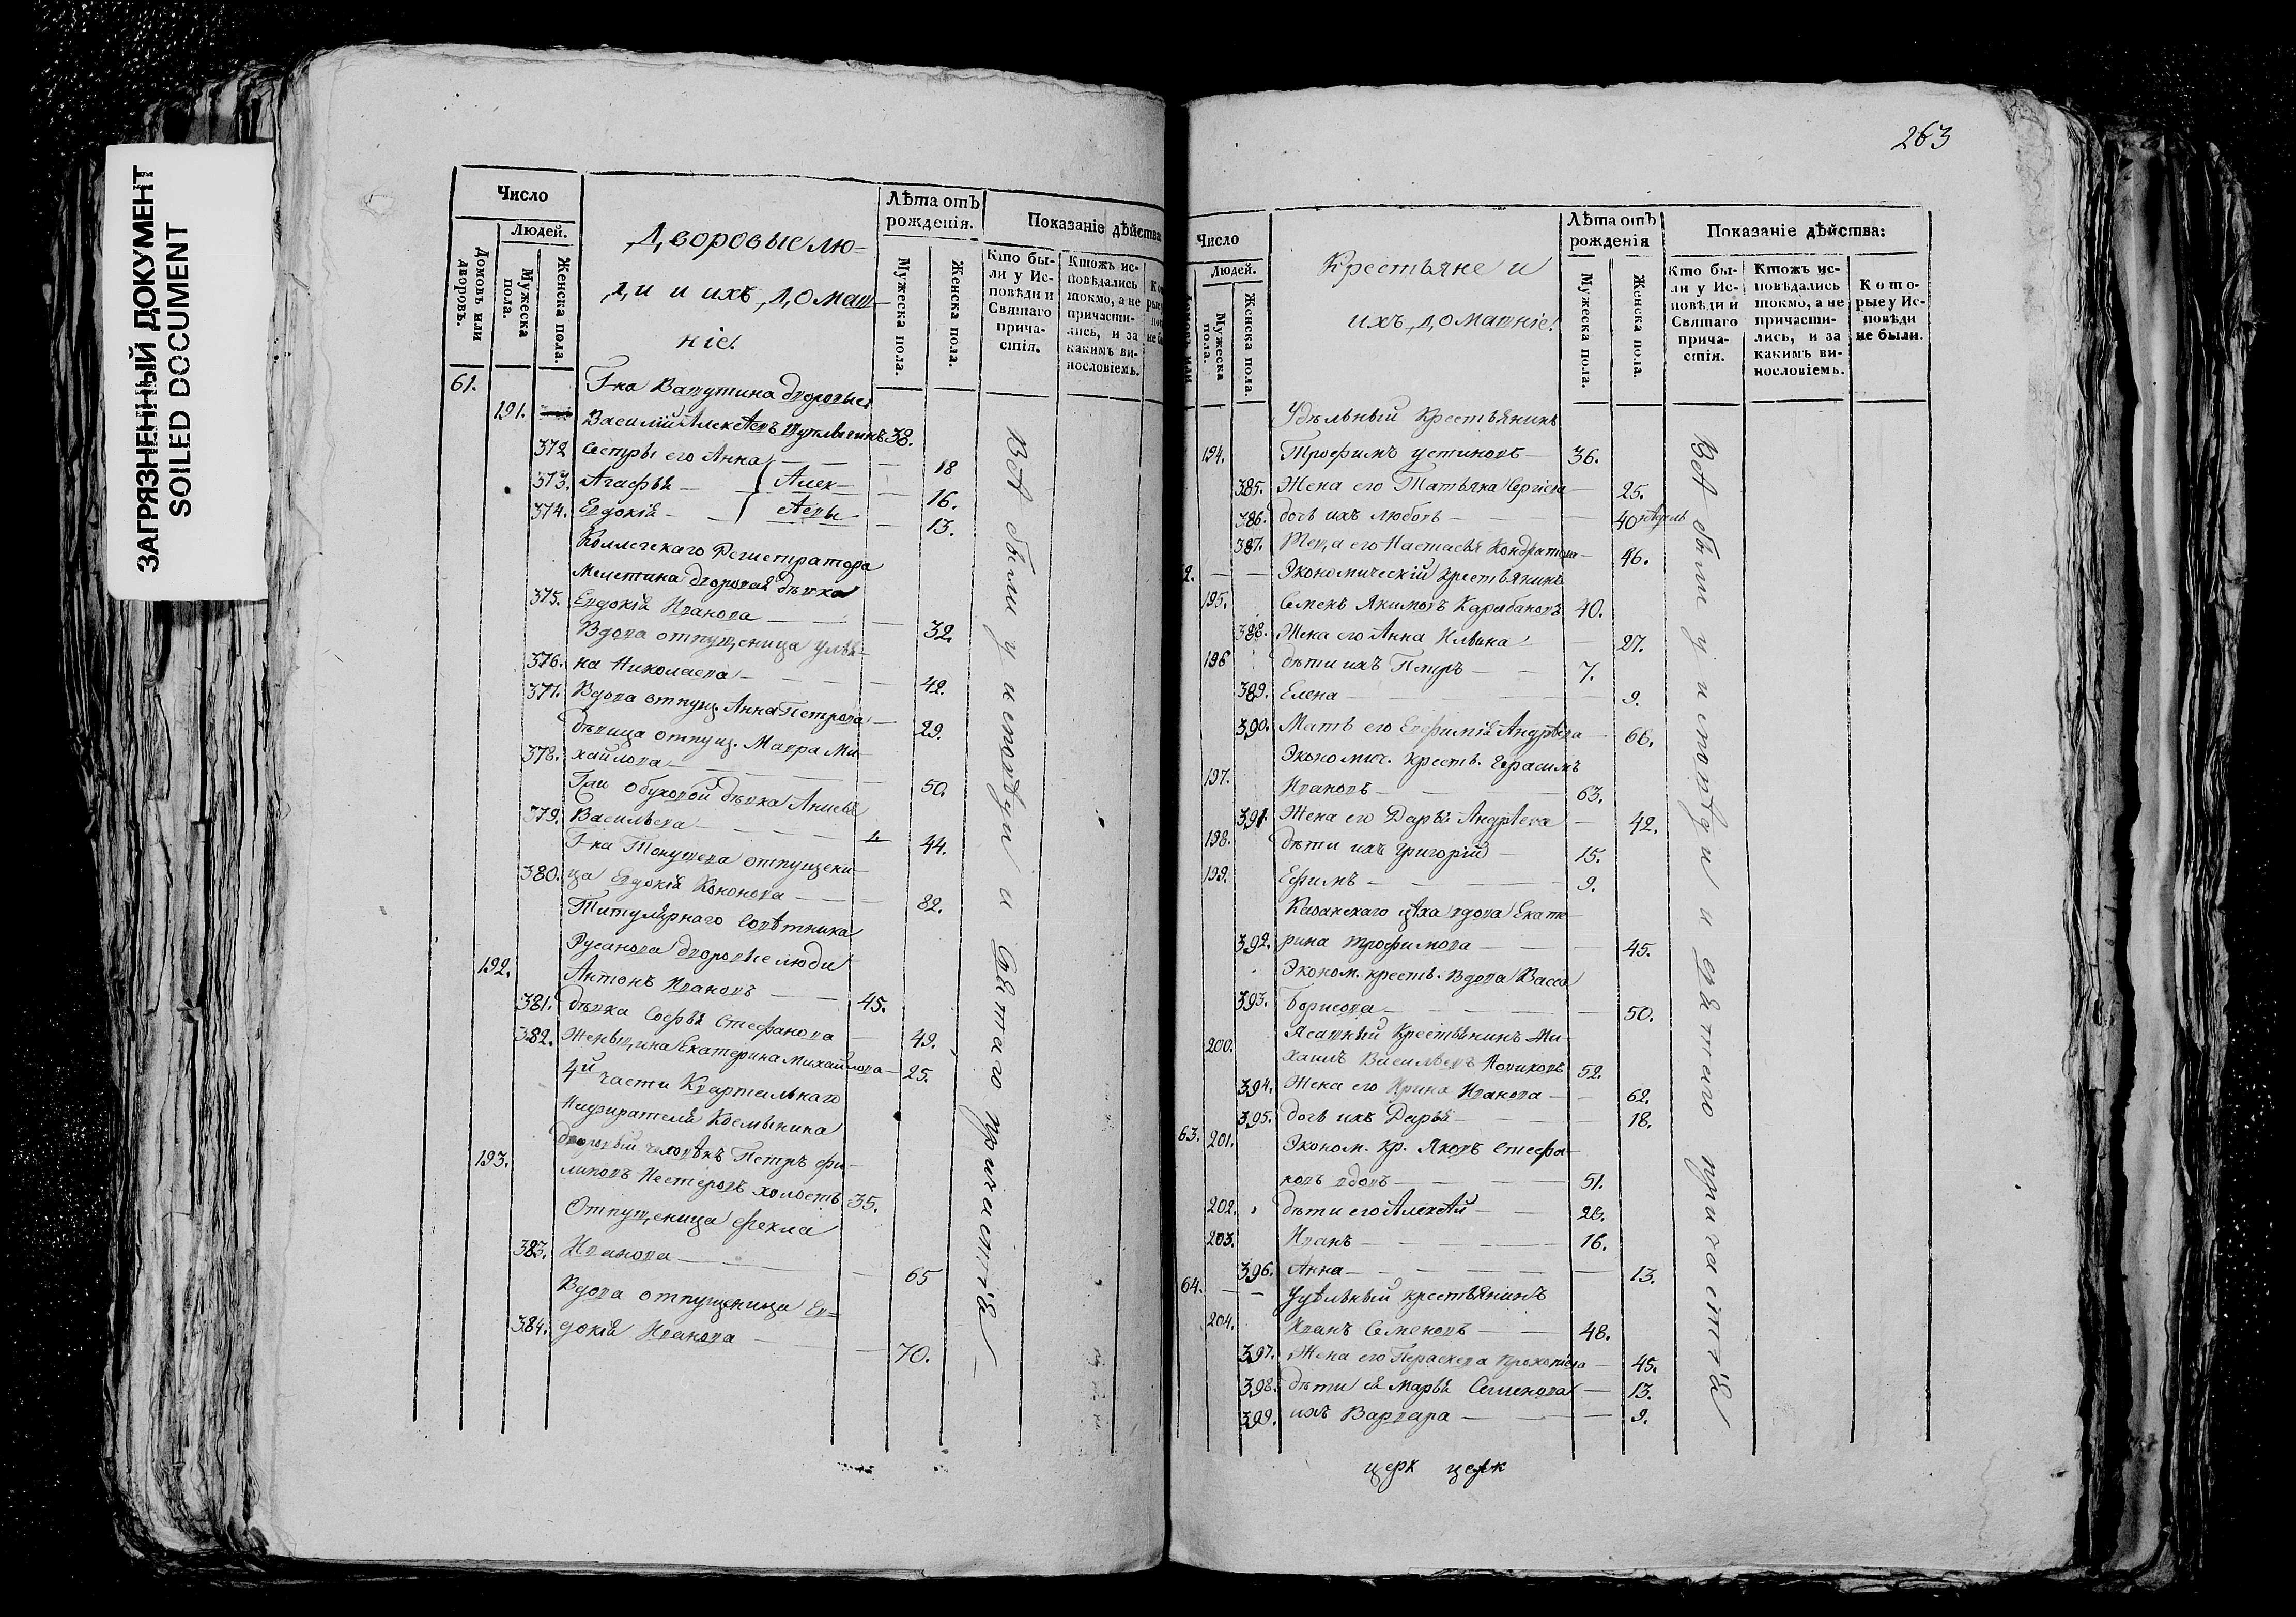 ЗАГРЯЗНЕННЫЙ ДОКУМЕНТ
SOILED DOCUMENT
Число
Людей.
Домовъ или дворовъ.
Мужеска пола.
Женска пола.
Дворовые лю-
ди и ихъ домаш-
ніе.
Лѣта отъ рожденія.
Мужеска пола.
Женска пола.
Показаніе дѣйства:
Кто бы-
ли у Ис-
повѣди и
Святаго
прича-
стія.
Ктожъ ис-
повѣдались
токмо, а не
причасти-
лись, и за
какимъ ви-
нословіемъ.
61. Г-на Ватутина дворовые
191. Василій Алексѣевъ 38.
372 Сестры его Анна — 18
373. Агафья — Алек- 16.
374. Евдокія — сѣевы 13.
Коллежскаго Регистратора
Мелетина дворовая дѣвка
375. Евдокія Иванова — 32.
Вдова отпущеница Улья-
376. на Николаева — 42.
377. Вдова отпущ. Анна Петрова — 29.
дѣвица отпущ. Мавра Ми-
378. хайлова — 50.
Г-жи Обуховой дѣвка Анисья
379. Васильева — 44.
Г-на отпущени-
380. ца Евдокія Кононова — 82.
Титулярнаго Совѣтника
Русанова дворовые люди
192. Антонъ Ивановъ — 45.
381. дѣвка Софья Стефанова — 49.
382. Женьщина Екатерина Михайлова — 25.
4й части Квартальнаго
Надзирателя
193. дворовый человѣкъ Петръ Фи-
липовъ Нестеровъ холостъ 35.
Отпущеница Фекла
383. Иванова — 65
Вдова отпущеница Ев-
384. докія Иванова — 70.
Всѣ были у исповѣди и святаго причастія
263
Число
Людей.
Мужеска пола.
Женска пола.
Крестьяне и
ихъ домашніе.
Лѣта отъ рожденія
Мужеска пола.
Женска пола.
Показаніе дѣйства:
Кто бы-
ли у Ис-
повѣди и
Святаго
прича-
стія.
Ктожъ ис-
повѣдались
токмо, а не
причасти-
лись, и за
какимъ ви-
нословіемъ.
Кото-
рые у Ис-
повѣди
не были.
Удѣльный крестьянинъ
194. Трофимъ Устиновъ — 36.
385. Жена его Татьяна Сергіева — 25.
386. дочь ихъ Любовь — 40 недѣль
387. Теща его Настасья Кондратова — 46.
2. — — Экономическій крестьянинъ
195. Семенъ Якимовъ Карабановъ 40.
388. Жена его Анна Ильина — 27.
196 дѣти ихъ Петръ — 7.
389. Елена — 9.
390. Мать его Евфимія Андрѣева — 66.
Экономич. крестья. Герасимъ
197. Ивановъ — 63.
391. Жена его Дарья Андрѣева — 42.
198. дѣти ихъ Григорій — 15.
199. Ефимъ — 9.
Казанскаго цѣха вдова Екате-
392. рина Трофимова — 45.
Эконом. кресть. вдова Васса
393. Борисова — 50.
Ясашный крестьянинъ Ми-
200. хаилъ Васильевъ Новиковъ 52.
394. Жена его Ирина Иванова — 62.
395. дочь ихъ Дарья — 18.
63. 201. Эконом. кр. Яковъ Стефа-
новъ вдовъ — 51.
202. дѣти его Алексѣй — 20.
203. Иванъ — 16.
396. Анна — 13.
64. — — Удѣльный крестьянинъ
204. Иванъ Семеновъ — 48.
397. Жена его Параскева Прокопіева — 45.
398. дѣти ея Марья Семенова — 13.
399. ихъ Варвара — 9.
Всѣ были у исповѣди и святаго причастія
церк церк